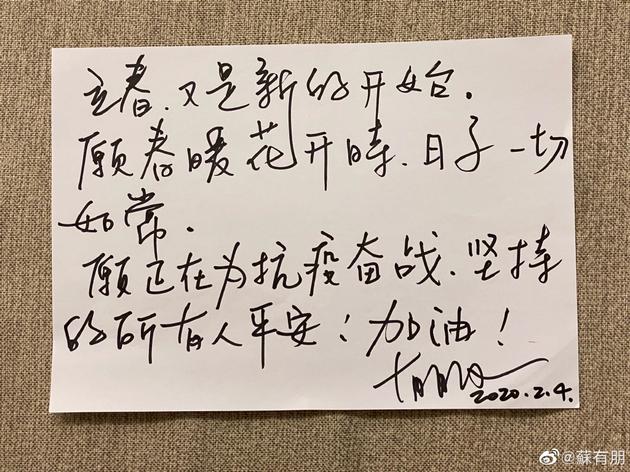 立春.又是新的开始.
愿春暖花开時.日子一切
如常.
愿正在为抗疫奋战.坚持
的所有人平安!加油!
有朋
2020.2.4.
@蘇有朋